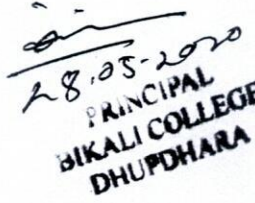 28.05-2020
PRINCIPAL
BIKALI COLLEGE
DHUPDHARA